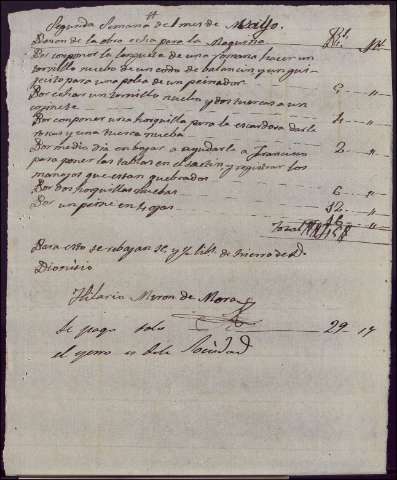 Segunda Semana del mes de Mayo.
Razon de la obra echa para la Maquina Rs. Ms.
Por componer la lanzueta de una semana hacer un
tornillo nuebo de un codo de balancin y un
para una polea de un peinador
Por echar un tornillo nuebo y dos tuercas a un
cojinete
Por componer una horquilla para la escardosa darle
roscas y una tuerca nueba
Por medio dia en bajar a ayudarle a Francisco 2 "
para poner las tablas en el y registrar los
manojos que estan quebrados
Por dos horquillas nuebas 6 "
Por un peine en ojas 12 "
Total
Para esto se rebajan 5 y ½ lib. de hierro de D.
Dionisio
Hilario Meron de Mora
Se pago solo 29 17
el yerro es de la Sociedad